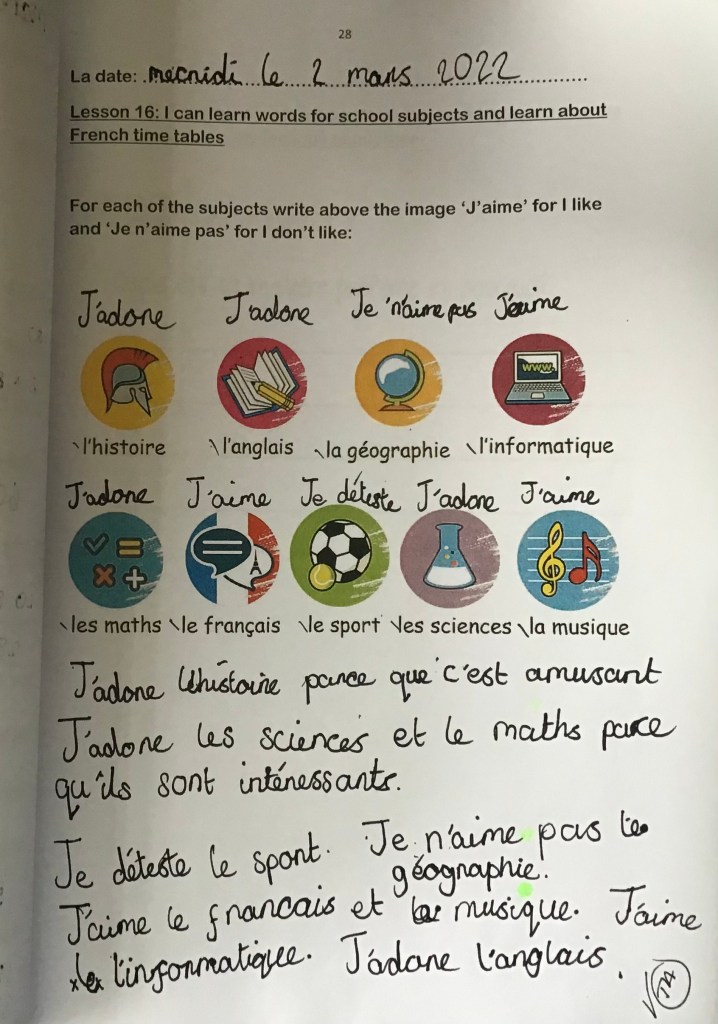 28
La date: mecnidi le 2 mars 2022
Lesson 16: I can learn words for school subjects and learn about
French time tables
For each of the subjects write above the image 'J'aime' for I like
and 'Je n'aime pas' for I don't like:
J'adore J'adore Je n'aime pas J'aime
www.
l'histoire l'anglais la géographie l'informatique
J'adore J'aime Je déteste J'adore J'aime
les maths le français le sport les sciences la musique
J'adore l'histoire parce que c'est amusant
J'adore les sciences et le maths parce
qu'ils sont intéressants.
Je déteste le sport. Je n'aime pas le
géographie.
J'aime le francais et la musique. J'aime
l'informatique. J'adore l'anglais.